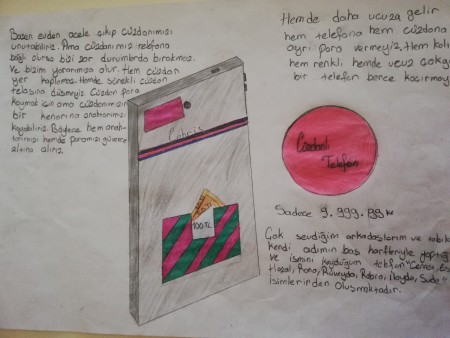 Bazen evden acele çıkıp cüzdanımızı
unutabiliriz. Ama cüzdanımız telefona
bağlı olursa bizi zor durumbrda bırakmaz.
Ve bizim yararımıza olur. Hem cüzdan
yer kaplamaz. Hemde sürekli cüzdan
telaşına düşmeyiz. Cüzdan para
koymak için ama cüzdanımızın
bir kenarına anahtarımızı
koyabiliriz. Böylece hem anah-
tarımızı hemde paramızı güvence
altına alırız.
Hemde daha ucuza gelir
hem telefona hem cüzdana
ayrı para vermeyiz. Hem
hem renkli hemde ucuz
bir telefon bence kaçırmay
Cahris
100 TL
Cüzdanlı
Telefon
Sadece 9.999.99
Çok sevdiğim arkadaşlarım ve
kendi adımın baş harfleriyle
ve ismini koyduğum telefon
Hazal, Rana, Rüveyda, Rabia, İlayda, Suda
isimlerinden oluşmaktadır.